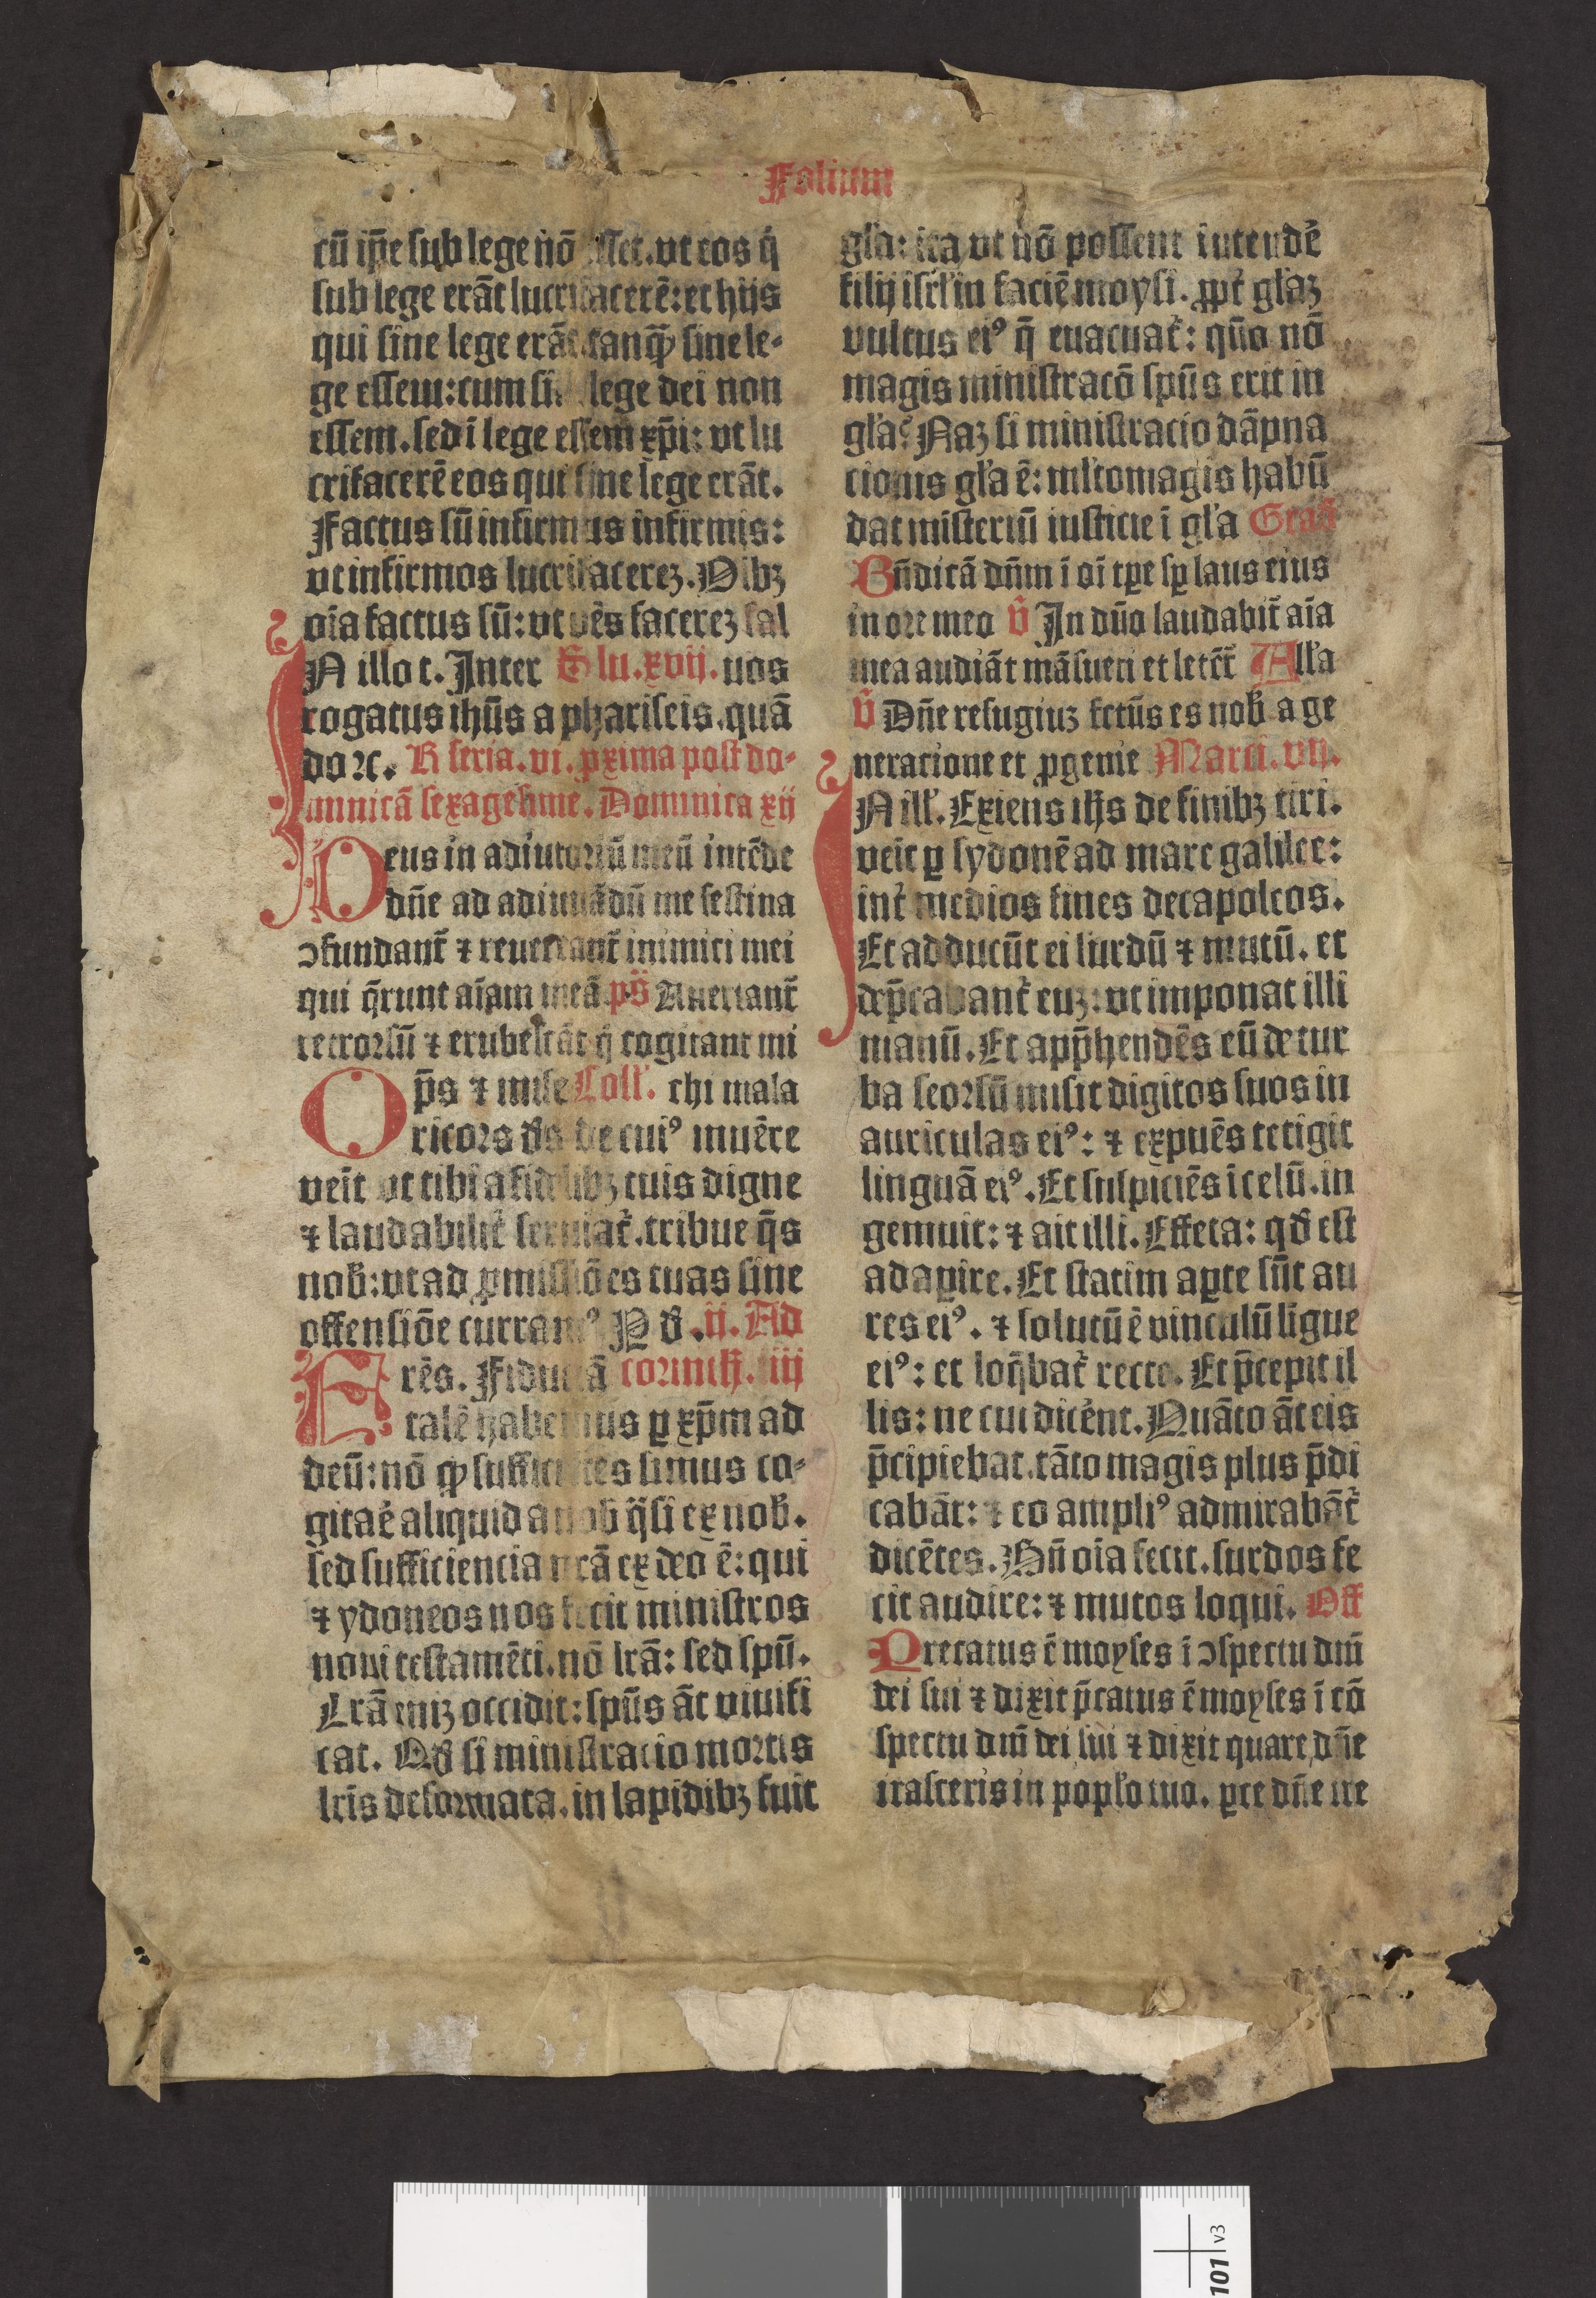 Folium
cū ip̄e sub lege nō esset. vt eos q́
sub lege erāt lucrifacerē: et hijs
qui sine lege erāt tanq̄ꝫ sine le-
ge essem: cum sine lege dei non
essem. sed ī lege essem xp̄i: vt lu
crifacerē eos qui sine lege erāt.
Factus sū infirmus infirmis:
vt infirmos lucrifacereꝫ. Oībꝫ
oīa factus sū: vt oēs facereꝫ sal
IN illo t. Inter S lu. xvij. uos
rogatus ihūs a phariseis. quā
do ⁊c. R feria. vi. ꝓxima post do-
minicā sexagesime. Dominica xij
Deus in adiutoriū meū intēde
dn̄e ad adiuuādū me festina
ↄfundant᷑ ⁊ reuereant᷑ inimici mei
qui q̄runt aīam meā p̄s Auertant᷑
retrorsū ⁊ erubescāt q́ cogitant mi
Op̄s ⁊ mise Coll̕. chi mala
ricors d̄s de cui⁹ mūere
veīt vt tibi a fidelibꝫ tuis digne
⁊ laudabilit᷑ seruiat᷑. tribue q̄s
nob̄: vt ad ꝓmissiōes tuas sine
offensiōe curram⁹ P d̄. ij. Ad
Frēs. Fiduciā corinth. iij
talē habemus ꝑ xp̄m ad
deū: nō ꝙ sufficiētes simus co-
gitar̄e aliquid a nob̄ q̄si ex nob̄.
sed sufficiencia nrā̄ ex deo ē: qui
⁊ ydoneos nos fecit ministros
noui testamēti. nō lrā̄: sed spū.
Lrā̄ eniꝫ occidit: spūs āt viuifi
cat. Qd̄ si ministracio mortis
lrī̄s deformata. in lapidibꝫ fuit
gl̄a: ita vt nō possent intendēr
filij isrl̄ in faciē moysi. ꝓpt᷑ gl̄aꝫ
vultus ei⁹ q̄ euacuat᷑: qūo nō
magis ministracō spūs erit in
gl̄a? Naꝫ si ministracio dāpna
cionis gl̄a ē: ml̄tomagis habū
dat misteriū iusticie ī gl̄a Grad̄
Bn̄dicā dn̄m ī oī tꝑe sꝑ laus eius
in ore meo v̄ In dn̄o laudabit᷑ aīa
mea audiāt māsueti et letēt᷑ All̄a
v̄ Dn̄e refugiuꝫ fctūs es nob̄ a ge
neracione et ꝓgenie Marci. vij.
IN ill̕. Exiens ihs̄ de finibꝫ tiri.
veīt ꝑ sydonē ad mare galilee:
int᷑ medios fines decapoleos.
Et adducūt ei surdū ⁊ mutū. et
dep̄cabant᷑ euꝫ: vt imponat illi
manū. Et app̄hendēs eū de tur
ba seorsū misit digitos suos in
auriculas ei⁹: ⁊ expuēs tetigit
linguā ei⁹. Et suspiciēs ī celū. in
gemuit: ⁊ ait illi. Effeta: qd̄ est
adaꝑire. Et statim aꝑte sūt au
res ei⁹. ⁊ solutū ē vinculū ligue
ei⁹: et loq̄bat᷑ recte. Et p̄cepit il
lis: ne cui dicēnt. Quāto āt eis
p̄cipiebat. tāto magis plus p̄di
cabāt: ⁊ eo ampli⁹ admirabāt᷑
dicētes. Bn̄ oīa fecit. surdos fe
cit audire: ⁊ mutos loqui. Off
Precatus ē moyses ī ↄspectu dn̄i
dei sui ⁊ dixit p̄catus ē moyses ī cō
spectu dn̄i dei sui ⁊ dixit quare dn̄e
irasceris in popl̄o tuo. ꝑce dn̄e ire